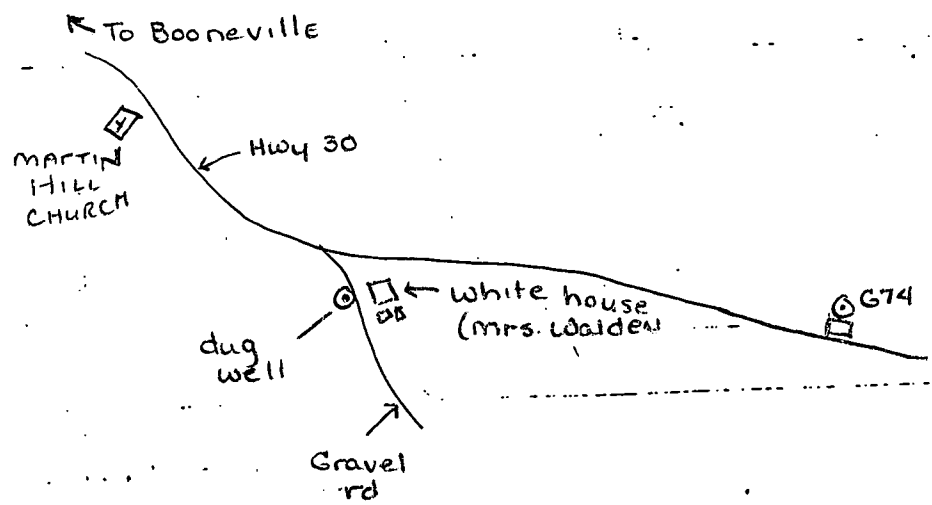 To Booneville
Hwy 30
MARTIN
HILL
CHURCH
white house
(mrs. Walden
G74
dug
well
Gravel
rd